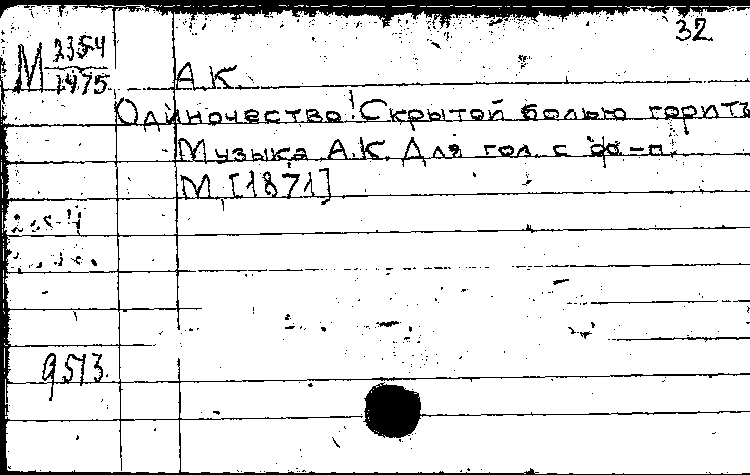 32
М 2354
1975
А.К.
Одиночество! Скрытой болью горитъ
Музыка А.К. Для гол. с ф-п.
М, [1871]
9573.